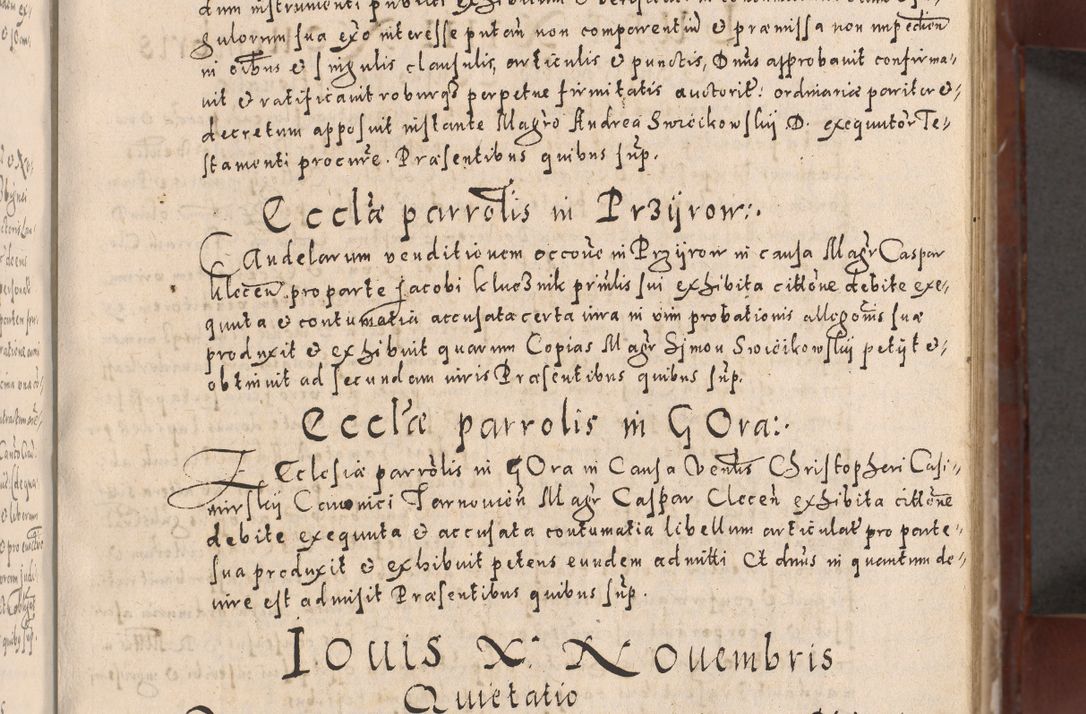 gulorum sua exo interesse putan̄ non comparentiū et præmissa non impedien̄
in oībus et singulis clausulis, articulis et punctis, Dnūs approbavit confirma-
vit et ratificavit roburqȝ perpetue firmitatis auctorit: ordinariæ pariter et
decretum apposuit instante Magrō Andrea Swięcikowskij D. exequutor Te-
stamenti procurē. Præsentibus quibus sup̄.
Ecclīæ parrolīs in Przijrow:
Candelarum venditionem occōne in Przijrow in causa Magr Caspar
Klecen̄. pro parte Jacobi Klucznik prinlis sui exhibita cittōne debite exe-
quuta et contumatia accusata certa iura in vim probationis allegōnis suæ
produxit et exhibuit quarum Copias Magr Simon Swięcikowskij petijt et
obtinuit ad secundam iuris Præsentibus quibus sup̄.
Ecclīæ parrolis in GOra:
Ecclesiæ parrōlis in GOra in Causa Venlis Christopheri Casi-
mirskij Canonici Tarnovien̄ Magr Caspar Clecen̄ exhibita cittōne
debite exequuta et accusata contumatia libellum articulat pro parte
sua produxit et exhibuit petens eundem admitti Et dnūs in quantum de
iure est admisit Præsentibus quibus sup̄.
Iovis X. Novembris
Quietatio